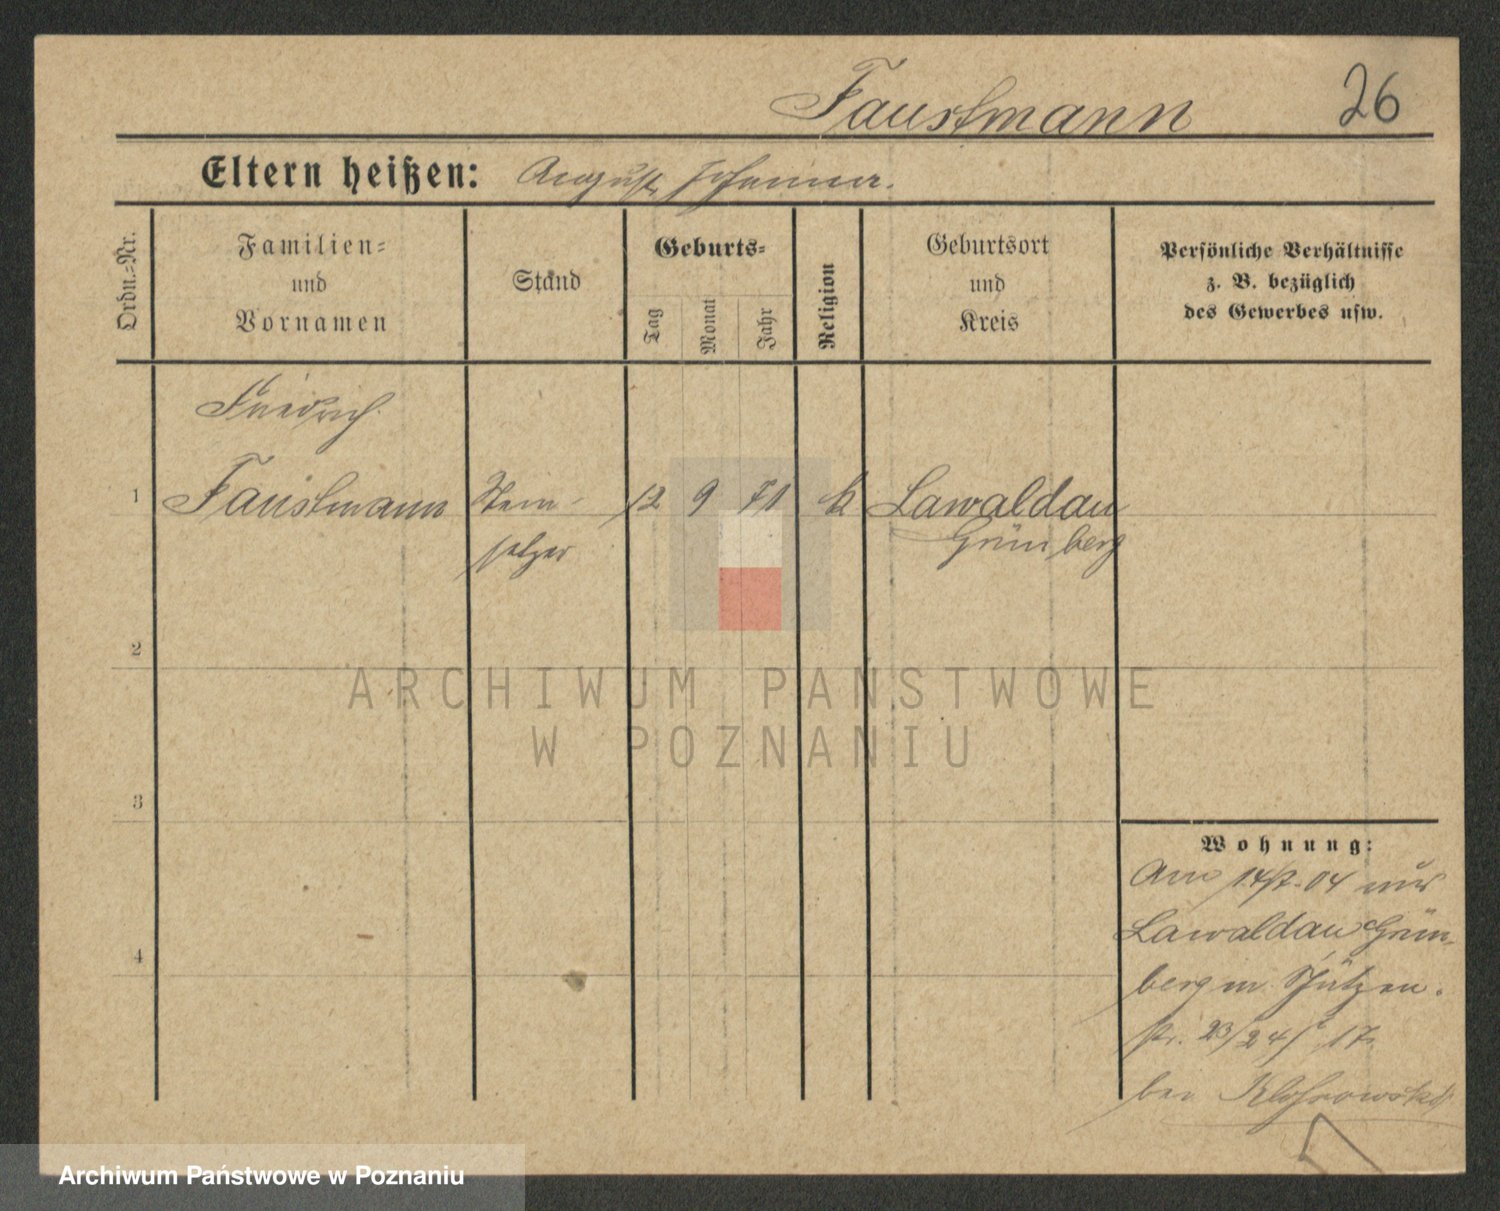 Faustmann 26
Eltern heißen: August, Johanna.
Ordn.=Nr.
Familien=
und
Vornamen
Stand
Geburts=
Tag
Monat
Jahr
Religion
Geburtsort
und
Kreis
Persönliche Verhältnisse
z. B. bezüglich
des Gewerbes usw.
Friedrich
1 Faustmann Stein- 12 9 71 k Lawaldau
setzer Grünberg
2
ARCHIWUM PAŃSTWOWE
W POZNANIU
3
Wohnung:
Am 04 aus
Lawaldau Grün-
4
berg n. Schützen-
str. 23/24 17
bei
Archiwum Państwowe w Poznaniu